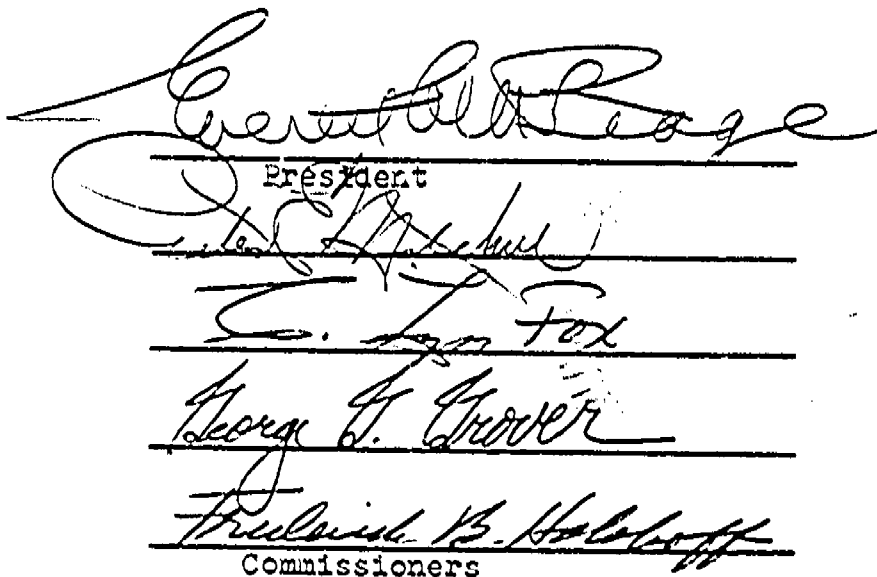 Everett C. McKeage
President
Mitchell
C. Lyn Fox
George G. Grover
Frederick B. Holoboff
Commissioners